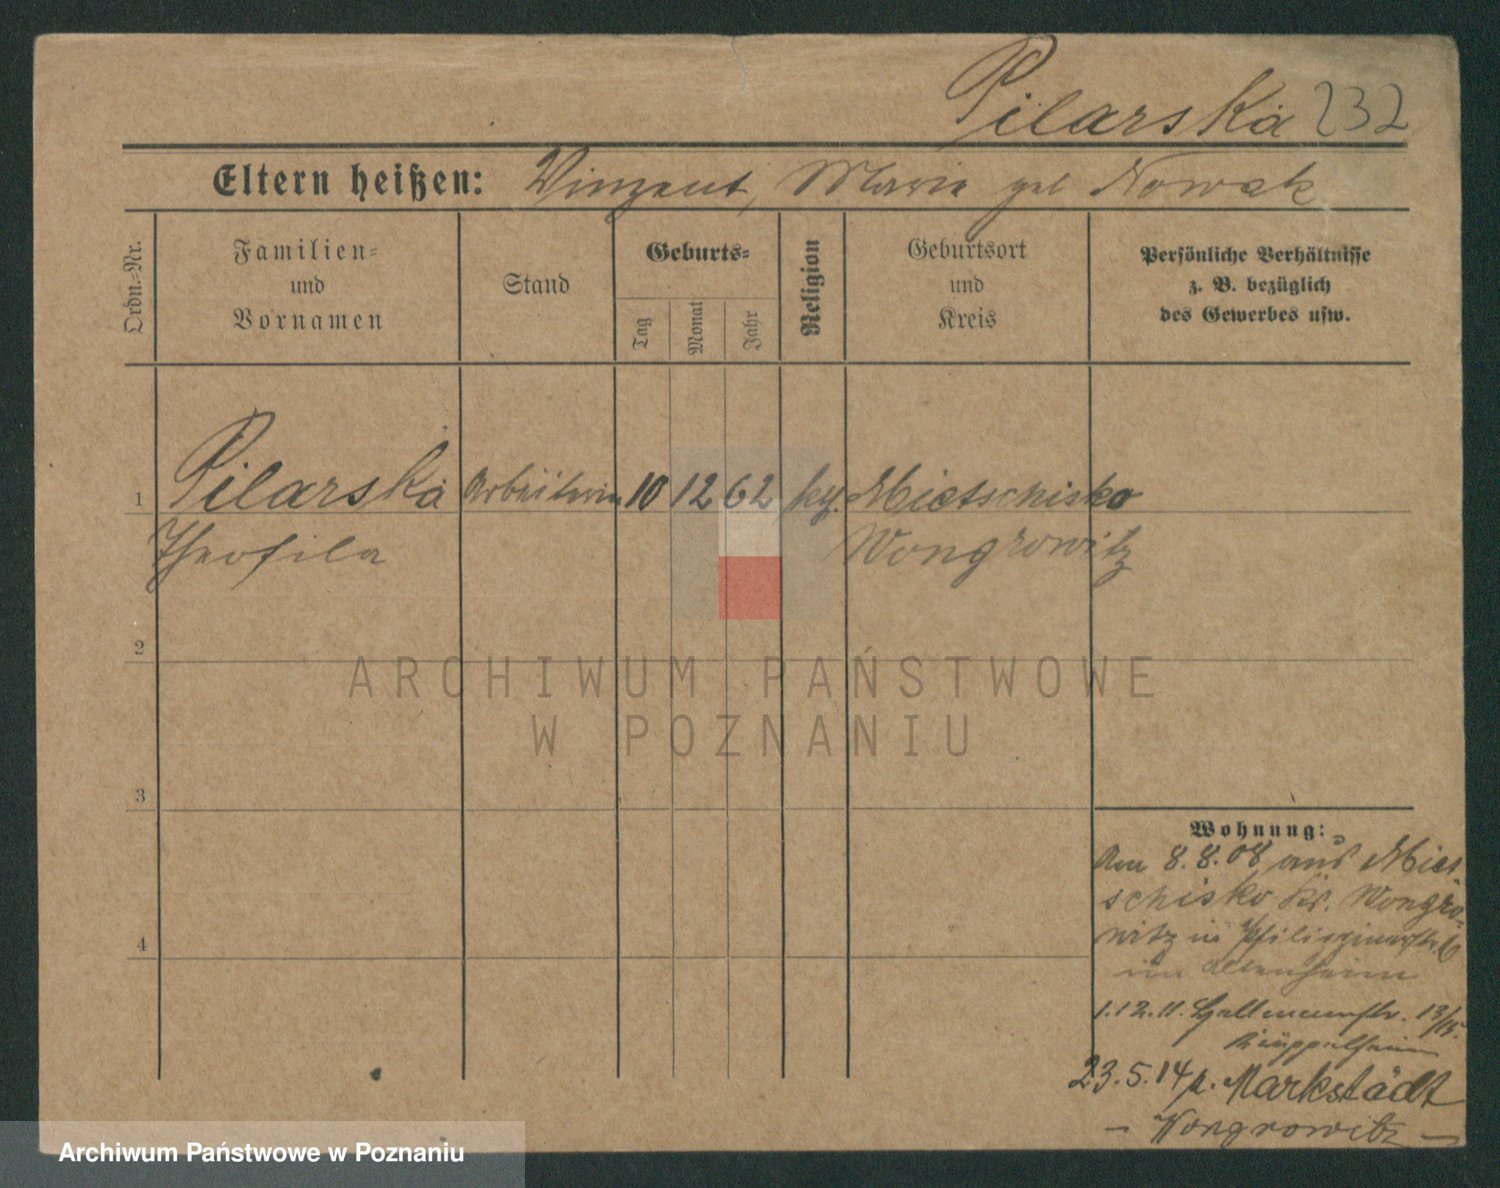 Pilarska 232
Eltern heißen: Vinzent, Maria geb Nowak
Ordn.-Nr.
Familien-
und
Vornamen
Stand
Geburts-
Tag
Monat
Jahr
Religion
Geburtsort
und
Kreis
Persönliche Verhältnisse
z. B. bezüglich
des Gewerbes usw.
1 Pilarska Arbeiterin 10 12 62 Mietschisko
Theofila Wongrowitz
2
3
4
Wohnung:
Am 8.8.08 aus Miet
schisko Kr. Wongro-
witz in
im
1.12.11. 13/15.
23.5.14 n. Markstädt
- Wongrowitz -
ARCHIWUM PAŃSTWOWE
W POZNANIU
Archiwum Państwowe w Poznaniu